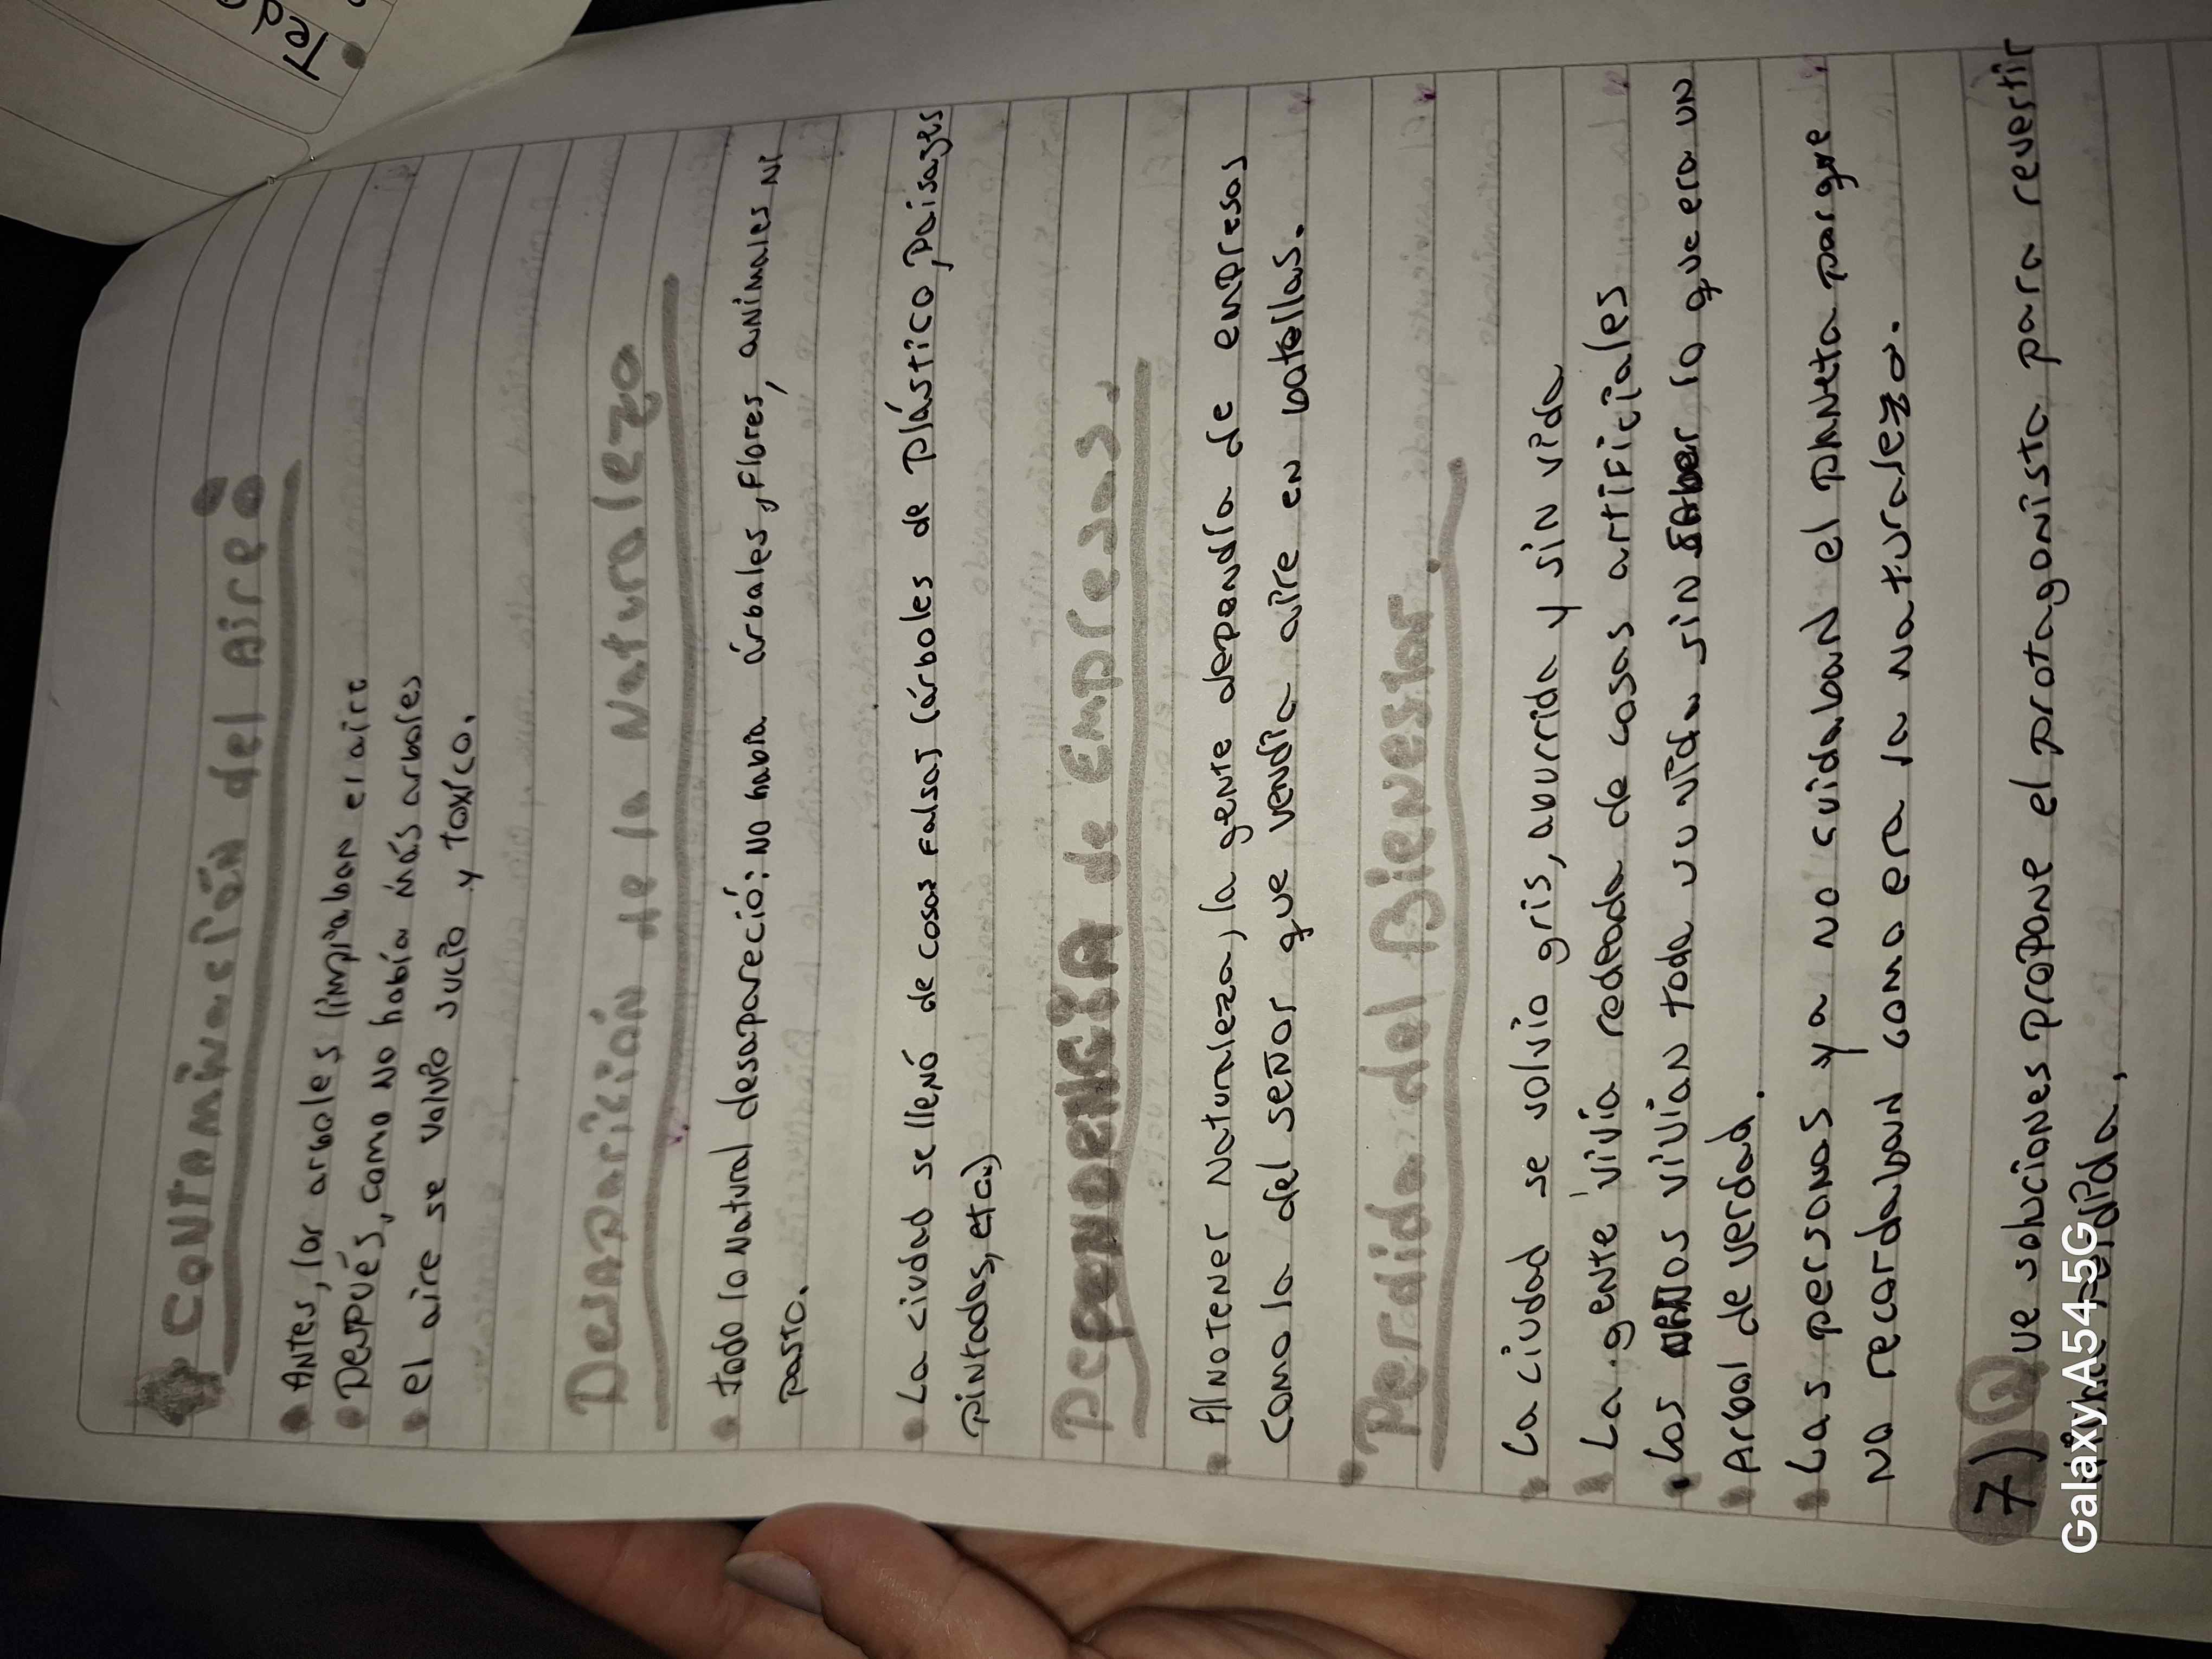 Ted
Contaminación del Aire:
Antes, los arboles limpiaban el aire
Después, como no había más arboles
el aire se volvió sucio y toxico.
Desaparición de la Naturaleza
todo lo natural desapareció: no había árboles, flores, animales ni
pasto.
La ciudad se llenó de cosas falsas (árboles de plástico, paisages
pintados, etc.)
Dependencia de Empresas.
Al no tener naturaleza, la gente dependía de empresas
como la del señor que vendía aire en botellas.
Perdida del Bienestar.
La ciudad se volvio gris, aburrida y sin vida
La gente vivía rodeada de cosas artificiales
Los niños vivían toda su vida sin saber lo que era un
Arbol de verdad.
Las personas ya no cuidaban el planeta porque
no recordaban como era la naturaleza.
7) Que soluciones propone el protagonista para revertir
Galaxy A54 5G